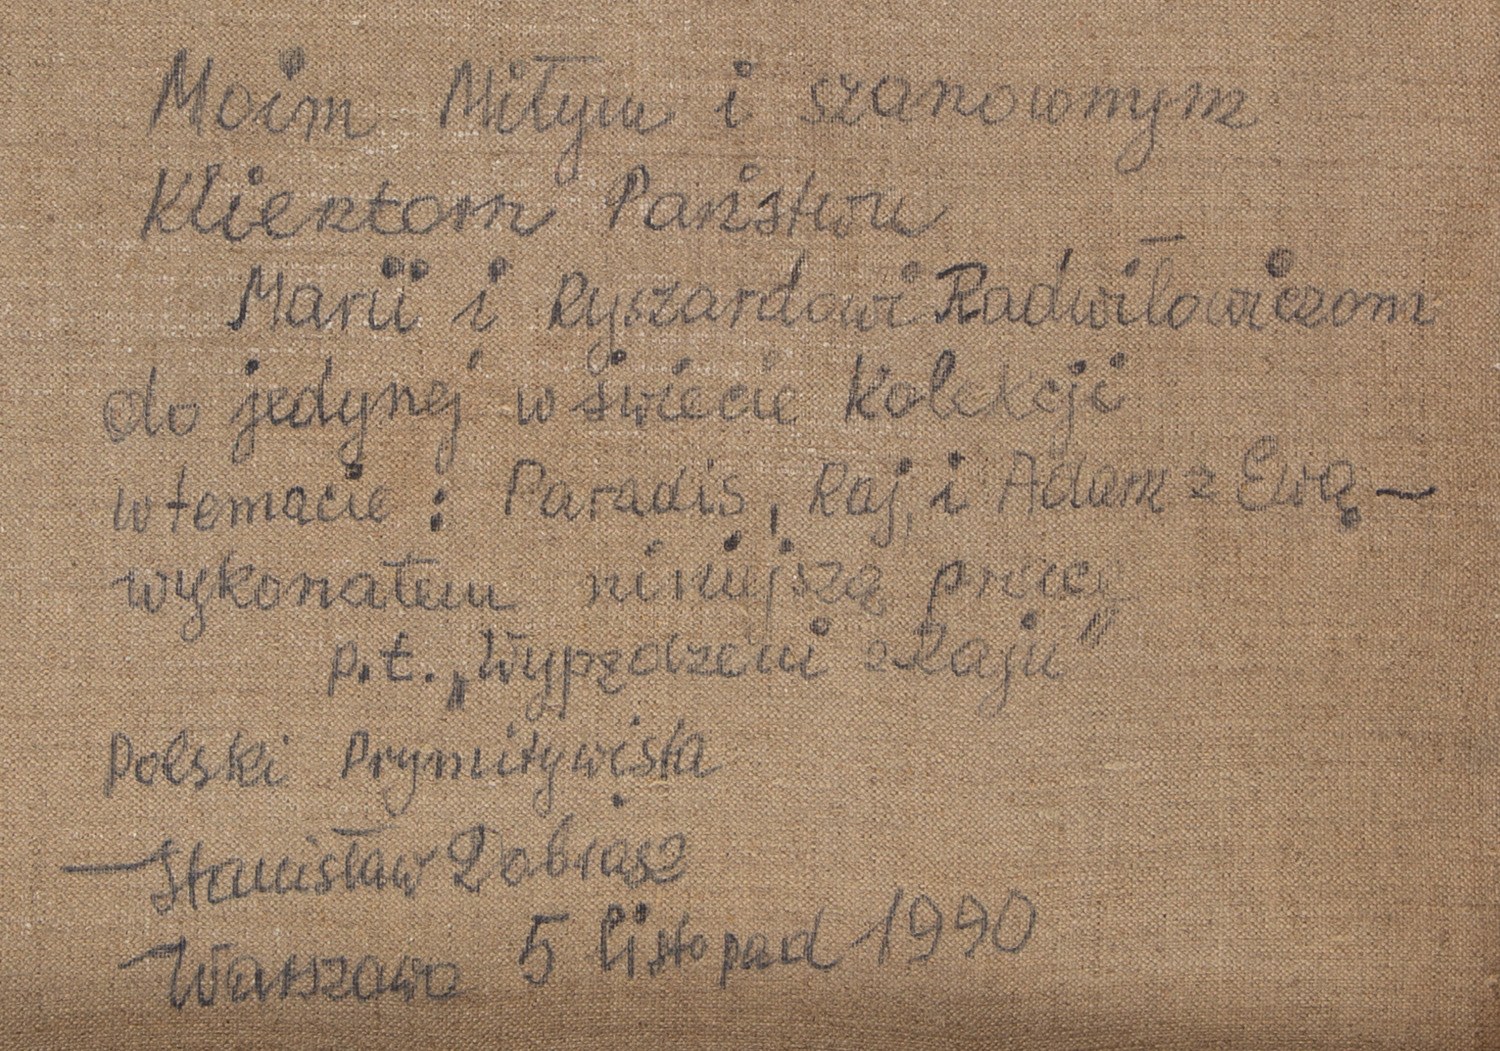 Moim Miłym i szanownym
Klientom Państwu
Marii i Ryszardowi Radwiłowiczom
do jedynej w świecie Kolekcji
w temacie : Paradis, Raj, i Adam z Ewą ~
wykonałem niniejszą pracę
p.t. „Wypędzeni z Raju”
Polski Prymitywista
Stanisław Dobiasz
Warszawa 5 listopad 1990